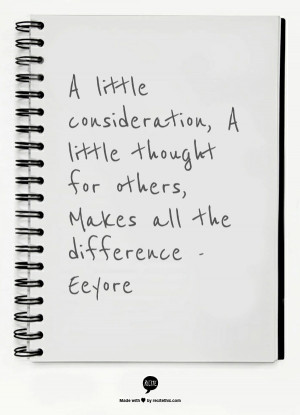 A little
consideration, A
little thought
for others,
Makes all the
difference -
Eeyore
Made with ♥ by recitethis.com